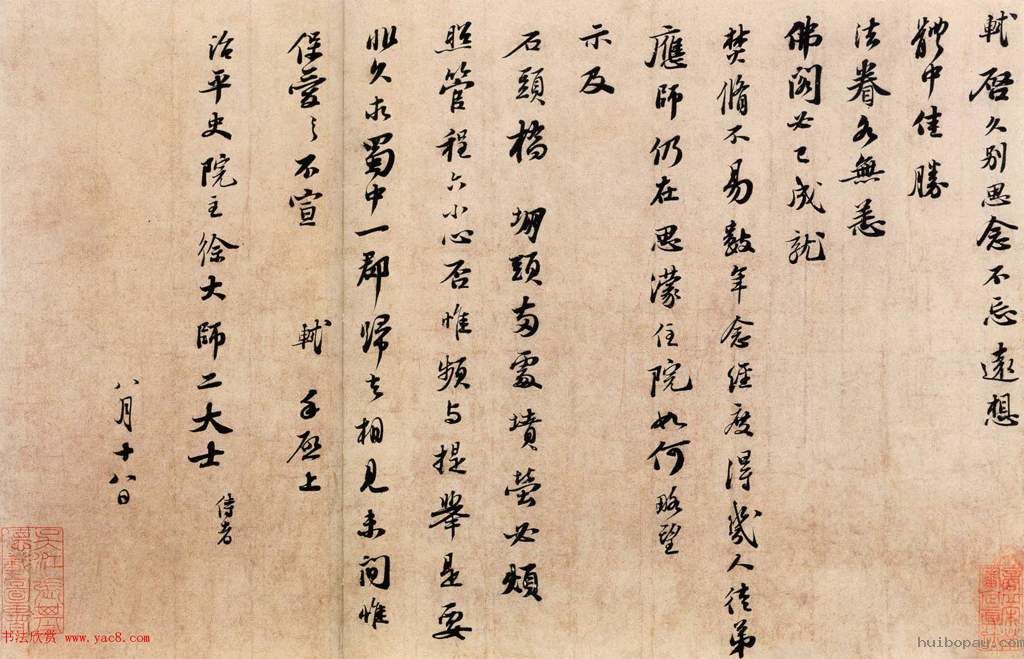 軾啓久别思念不忘遠想
體中佳勝
法眷各無恙
佛閣必已成就
焚脩不易數年念經度得幾人徒弟
應師仍在思濛住院如何略望
示及
石頭橋堋頭兩處墳塋必煩
照管程六小心否惟頻与提舉是要
非久求蜀中一郡歸去相見未間惟
保愛之不宣 軾手啓上
治平史院主徐大師二大士侍者
八月十八日
书法欣赏 www.yac8.com
huibopay.com